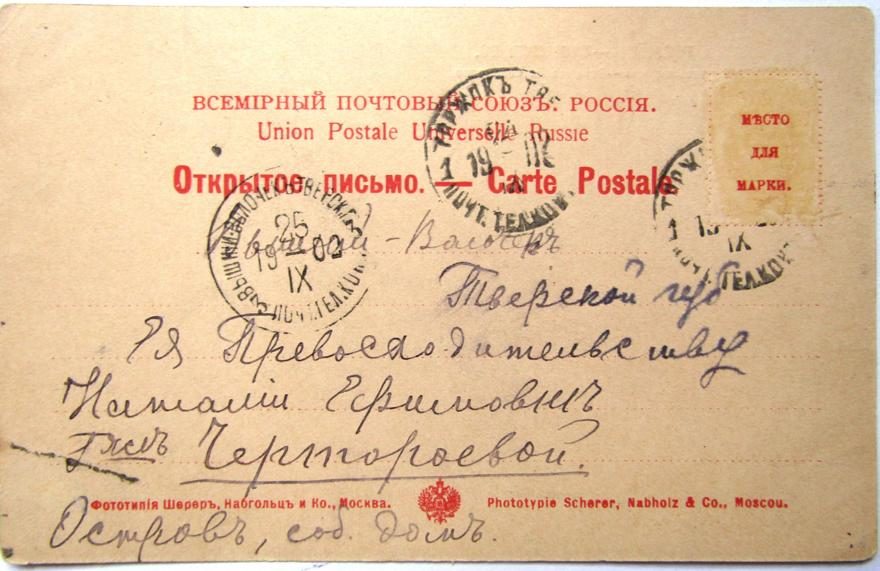 ВСЕМІРНЫЙ ПОЧТОВЫЙ СОЮЗЪ. РОССІЯ.
Union Postale Universelle Russie
Открытое письмо. — Carte Postale
МѢСТО
ДЛЯ
МАРКИ.
ТОРЖОКЪ ТВЕ
19 - 02
IX
1 ПОЧТ.ТЕЛ.КОН.
ТОРЖО
1 19
IX
ПОЧТ.ТЕЛ.КОН
ВЫШНІЙ-ВОЛОЧЕКЪ ТВЕРСК.
25
19 - 02
IX
ПОЧТ.ТЕЛ.КОН.
Вышній-Волочекъ
Тверской губ
Ея Превосходительству
Наталіи Ефимовнѣ
Гжѣ Чертороевой.
Фототипія Шереръ, Набгольцъ и Ко., Москва.
Phototypie Scherer, Nabholz & Co., Moscou.
Островъ, соб. домъ.